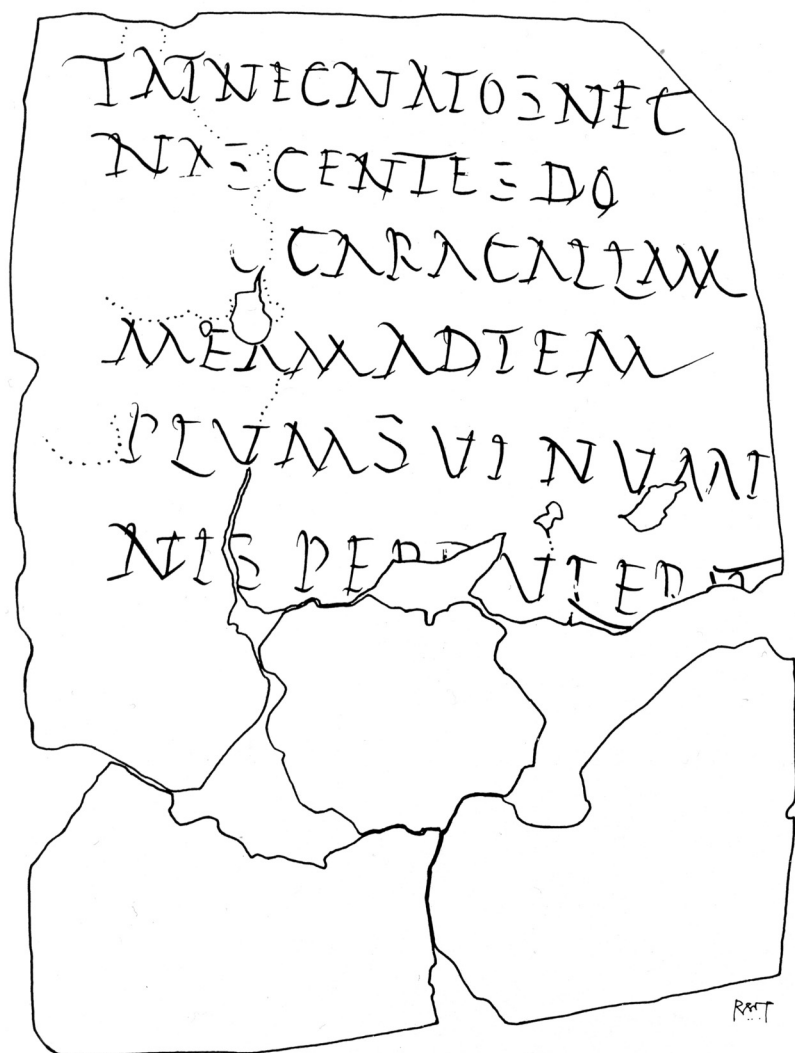 TAT NEC NATOS NEC
NASCENTES DO
C CARACALLAM
MEAM AD TEM
PLVM SVI NVMI
NIS PERTVLERIT
RSOT